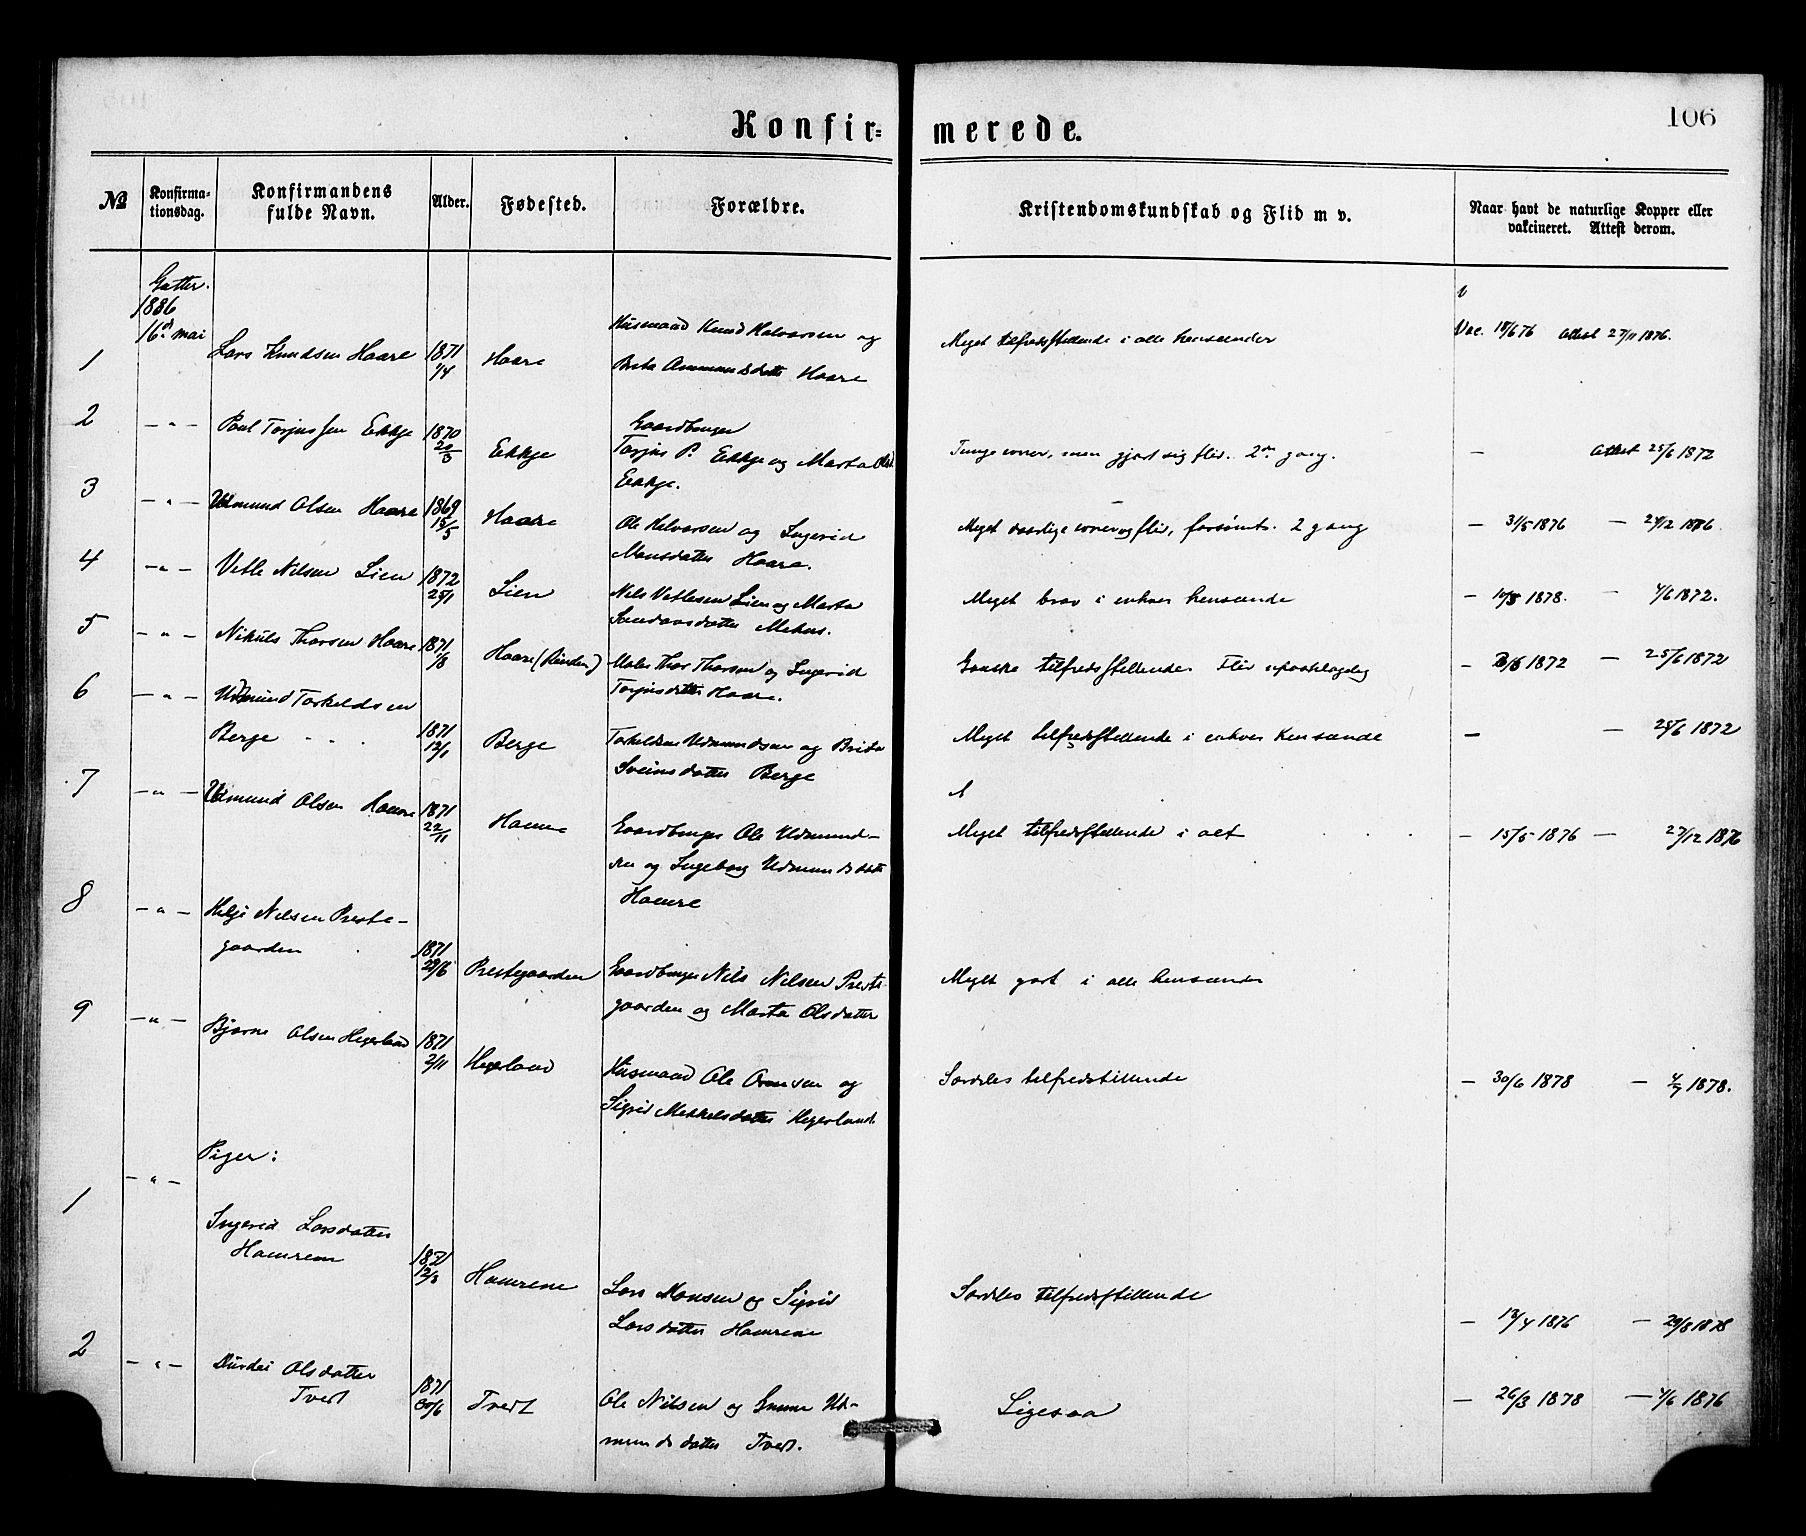 Konfir= merede.
106
№ Konfirma- Konfirmandens Alder. Fødested. Forældre. Kristendomskundskab og Flid m v. Naar havt de naturlige Kopper eller
tionsdag. fulde Navn. vakcineret. Attest derom.
Gutter.
1886
16de mai
1 Lars Knudsen Haare 1871 Haare Husmand Knud Halvorsen og Meget tilfredsstillende i alle hensender Vac. 18/6 76 Attest 27/11 1876.
1/4 Brita Ammundsdatter Haare
2 — " — Poul Torjussen Ekkje 1870 Ekkje Gaardbruger Tunge evner, men gjort sig flid. 2den gang. — Attest 25/6 1872
Torjus P. Ekkje og Marta Olsd.
Ekkje.
3 — " — Udmund Olsen Haare 1869 Haare Ole Halvorsen og Ingerid Meget daarlige evner og flid, forsømt. 2 gang — 31/5 1876 — 27/12 1876.
15/5 Monsdatter Haare.
4 — " — Vetle Nilsen Lien 1872 Lien Nils Vetlesen Lien og Marta Meget brav i enhver hensende — 1878. — 4/6 1872.
25/1 Mehus.
5 — " — Nikuls Thorsen Haare 1871 Haare (Rinden) Maler Thor Thorsen og Ingerid Ganske tilfredsstillende. Flid upaaklagelig — 1872 — 25/6 1872
1/8 Torjusdatter Haare.
6 — " — Udmund Torkeldsen
Berge 1871 Berge Torkeld Udmundsen og Brita Meget tilfredsstillende i enhver Hensende — — 25/6 1872
12/1 Sveinsdatter Berge
7 — " — Udmund Olsen Hamre 1871 Hamre Gaardbruger Ole Udmund- Meget tilfredsstillende i alt — 15/5 1876 — 27/12 1876
22/11 sen og Ingeborg Udmundsdatter
Hamre
8 — " — Helje Nilsen Preste-
gaarden 1871 Prestegaarden Gaardbruger Nils Nilsen Preste- Meget godt i alle hensender
29/6 gaarden og Marta Olsdatter
9 — " — Bjørne Olsen Hegerland 1871 Hegerland Husmand Ole Ormsen og Særdeles tilfredstillende — 30/6 1878 — 4/7 1878.
2/11 Sigrid Mikkelsdatter Hegerland.
Piger:
1 — " — Ingerid Larsdatter
Hamrene 1871 Hamrene Lars Monsen og Sigrid Særdeles tilfredsstillende
12/3 Larsdatter Hamrene — 13/4 1876 — 29/8 1878
2 — " — Durdei Olsdatter
Tvedt 1871 Tvedt Ole Nilsen og Gunne Ud- Ligesaa — 26/3 1878 — 4/6 1876
30/6 mundsdatter Tvedt.